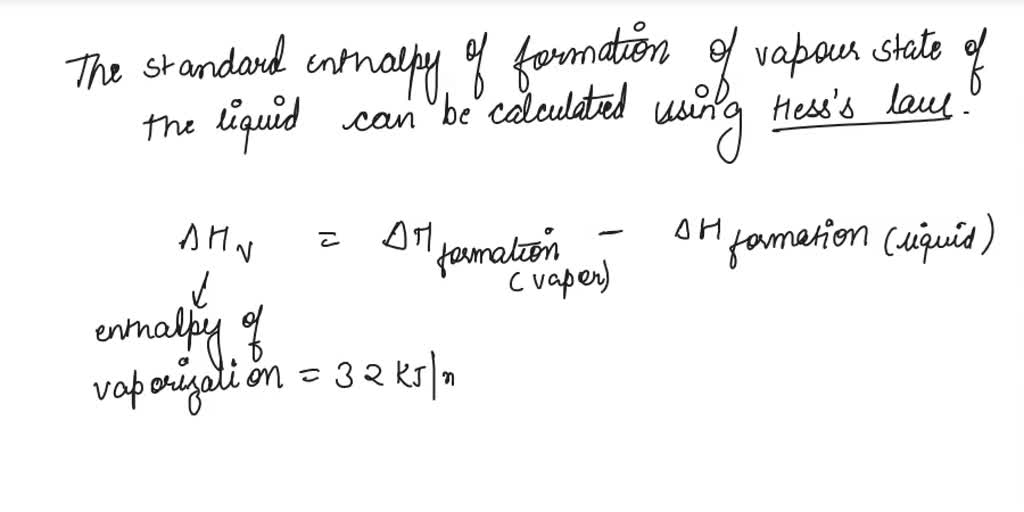 The standard enthalpy of formation of vapour state of
the liquid can be calculated using Hess's law.
ΔHv = ΔH formation (vaper) - ΔH formation (liquid)
↓
enthalpy of
vaporization = 32 KJ/m